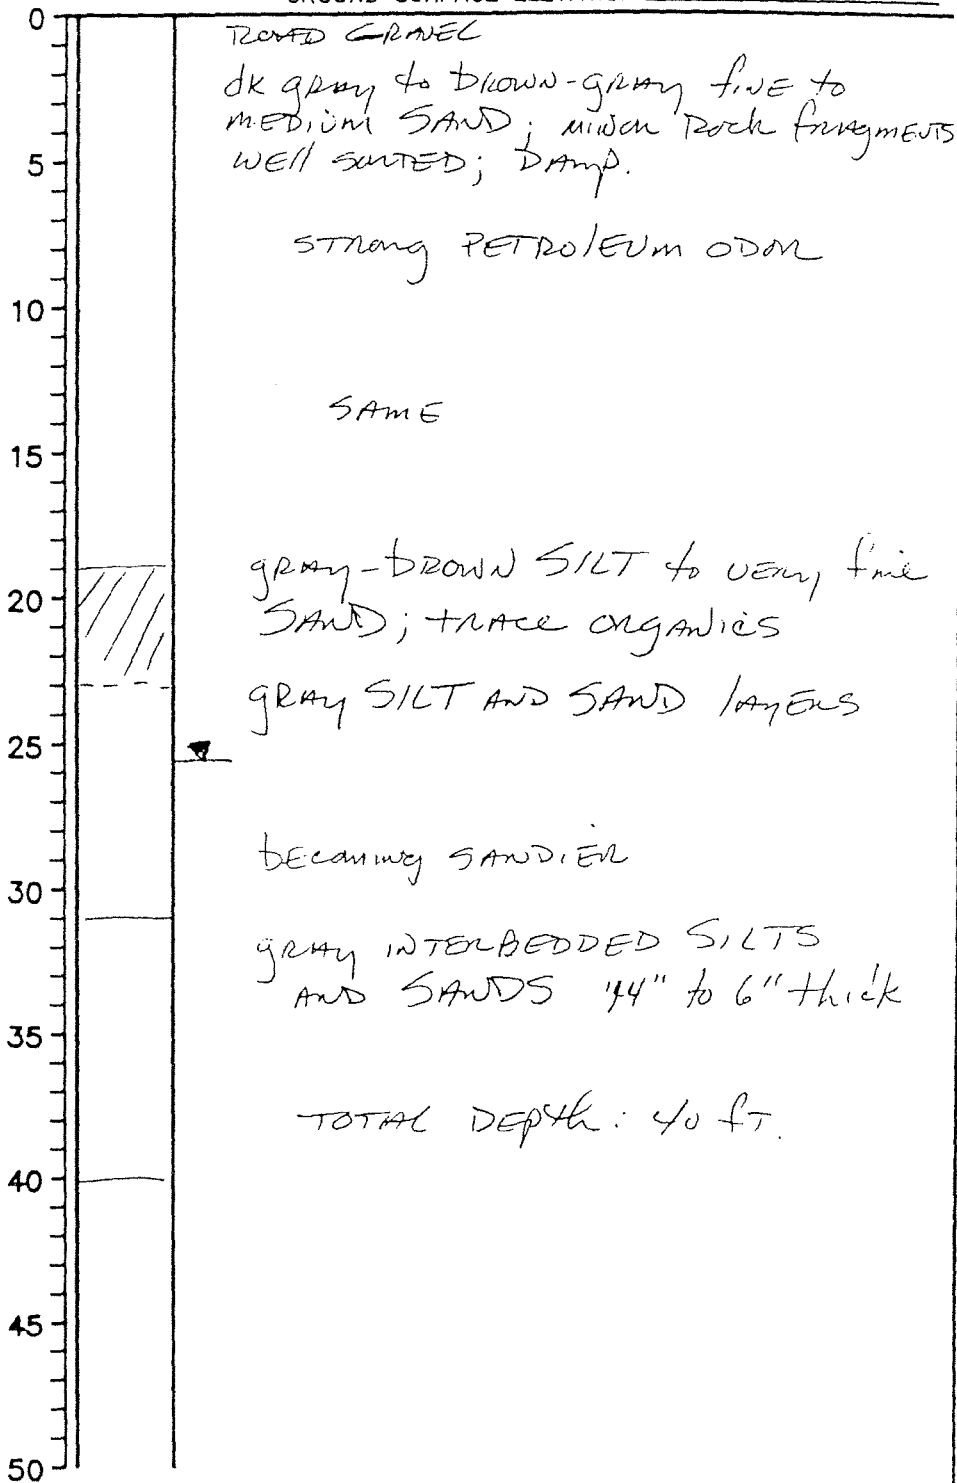 0
ROAD GRAVEL
dk gray to brown-gray fine to
MEDIUM SAND; minor Rock fragments
5
well SORTED; DAMP.
strong PETROLEUM ODOR
10
SAME
15
gray-brown SILT to very fine
20
SAND; trace organics
gray SILT AND SAND layers
25
becoming SANDIER
30
gray INTERBEDDED SILTS
AND SANDS 1/4" to 6" thick
35
TOTAL Depth: 40 fT.
40
45
50